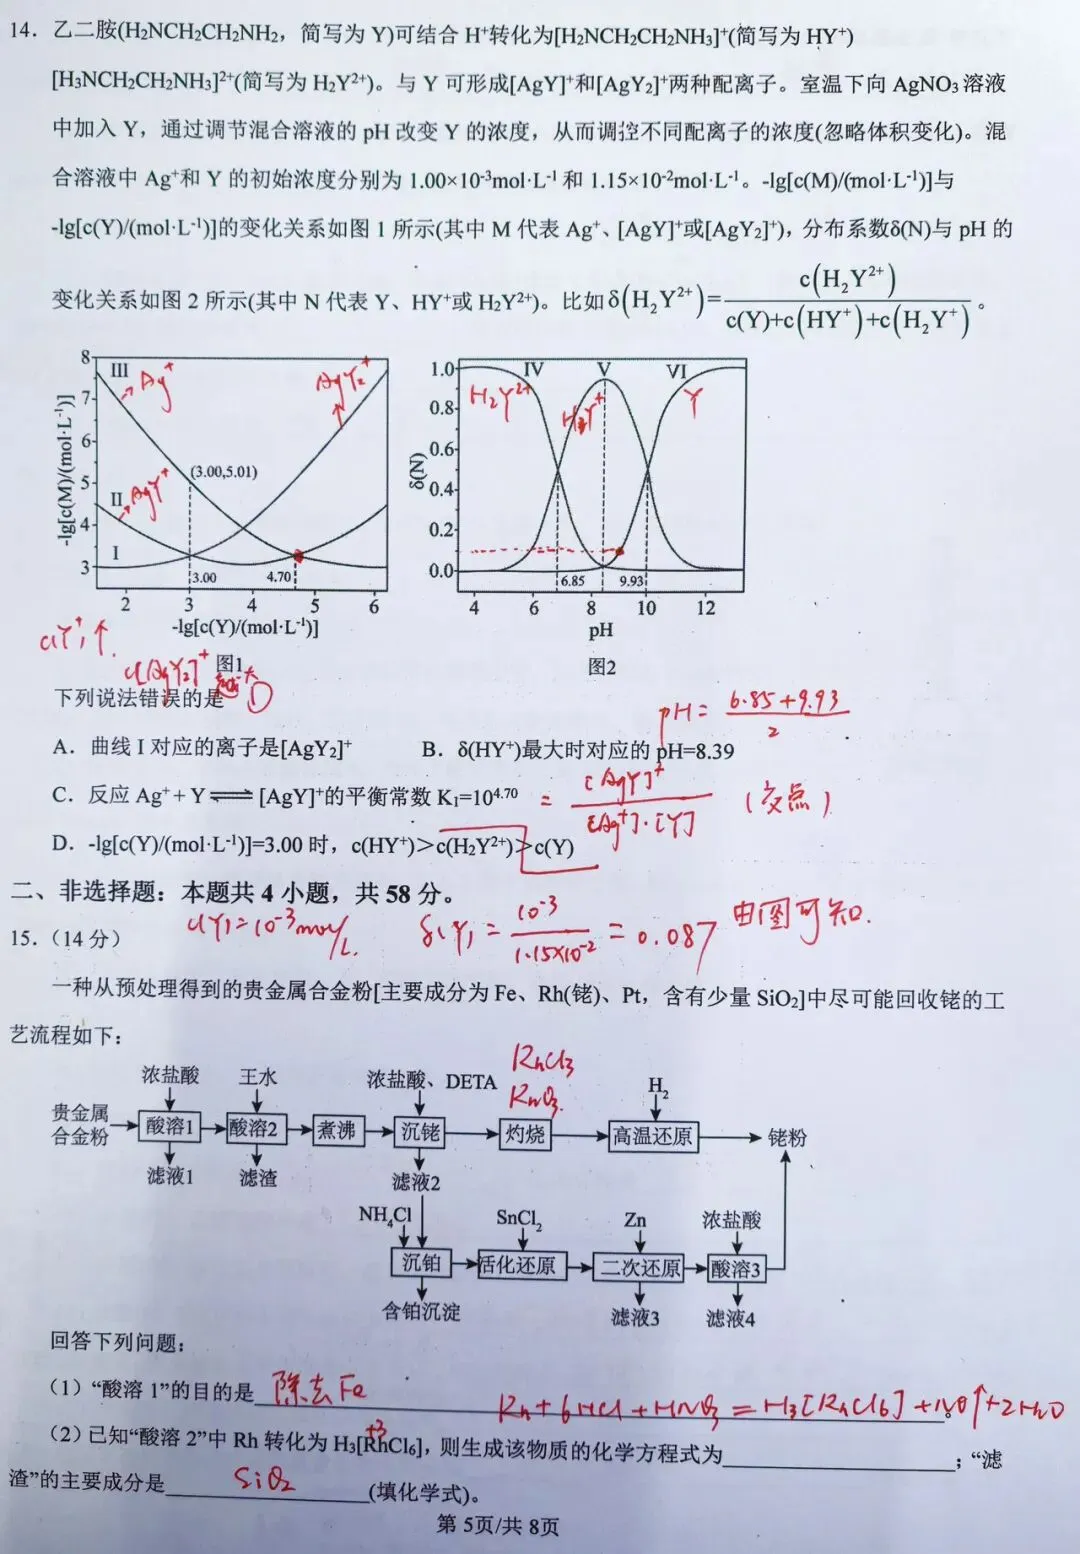 14. 乙二胺(H₂NCH₂CH₂NH₂，简写为 Y)可结合 H⁺转化为[H₂NCH₂CH₂NH₃]⁺(简写为 HY⁺)
[H₃NCH₂CH₂NH₃]²⁺(简写为 H₂Y²⁺)。与 Y 可形成[AgY]⁺和[AgY₂]⁺两种配离子。室温下向 AgNO₃ 溶液
中加入 Y，通过调节混合溶液的 pH 改变 Y 的浓度，从而调控不同配离子的浓度(忽略体积变化)。混
合溶液中 Ag⁺和 Y 的初始浓度分别为 1.00×10⁻³mol·L⁻¹ 和 1.15×10⁻²mol·L⁻¹。-lg[c(M)/(mol·L⁻¹)]与
-lg[c(Y)/(mol·L⁻¹)]的变化关系如图 1 所示(其中 M 代表 Ag⁺、[AgY]⁺或[AgY₂]⁺)，分布系数δ(N)与 pH 的
变化关系如图 2 所示(其中 N 代表 Y、HY⁺或 H₂Y²⁺)。比如 δ(H₂Y²⁺)= c(H₂Y²⁺) / c(Y)+c(HY⁺)+c(H₂Y⁺) 。
-lg[c(M)/(mol·L⁻¹)]
8
7
6
5
4
3
III
Ag⁺
AgY₂⁺
(3.00,5.01)
II
AgY⁺
I
3.00
4.70
2 3 4 5 6
-lg[c(Y)/(mol·L⁻¹)]
图1
δ(N)
1.0
0.8
0.6
0.4
0.2
0.0
IV V VI
H₂Y²⁺
Y
6.85
9.93
4 6 8 10 12
pH
图2
下列说法错误的是 D
pH = 6.85+9.93 / 2
A．曲线 I 对应的离子是[AgY₂]⁺
B．δ(HY⁺)最大时对应的 pH=8.39
C．反应 Ag⁺ + Y⇌[AgY]⁺的平衡常数 K₁=10⁴·⁷⁰
= [AgY]⁺ / [Ag⁺]·[Y] (交点)
D．-lg[c(Y)/(mol·L⁻¹)]=3.00 时，c(HY⁺)＞c(H₂Y²⁺)＞c(Y)
二、非选择题：本题共 4 小题，共 58 分。
c(Y)=10⁻³mol/L. δ(Y) = 10⁻³ / 1.15×10⁻² = 0.087 由图可知.
15.（14 分）
一种从预处理得到的贵金属合金粉[主要成分为 Fe、Rh(铑)、Pt，含有少量 SiO₂]中尽可能回收铑的工
艺流程如下：
RhCl₃
浓盐酸 王水 浓盐酸、DETA H₂
贵金属合金粉 酸溶1 酸溶2 煮沸 沉铑 灼烧 高温还原 铑粉
滤液1 滤渣 滤液2
NH₄Cl SnCl₂ Zn 浓盐酸
沉铂 活化还原 二次还原 酸溶3
含铂沉淀 滤液3 滤液4
回答下列问题：
（1）“酸溶 1”的目的是 除去 Fe 。
Rh + 6HCl + HNO₃ = H₃[RhCl₆] + NO↑ + 2H₂O
+3
（2）已知“酸溶 2”中 Rh 转化为 H₃[RhCl₆]，则生成该物质的化学方程式为 ；“滤
渣”的主要成分是 SiO₂ (填化学式)。
第 5页/共 8页